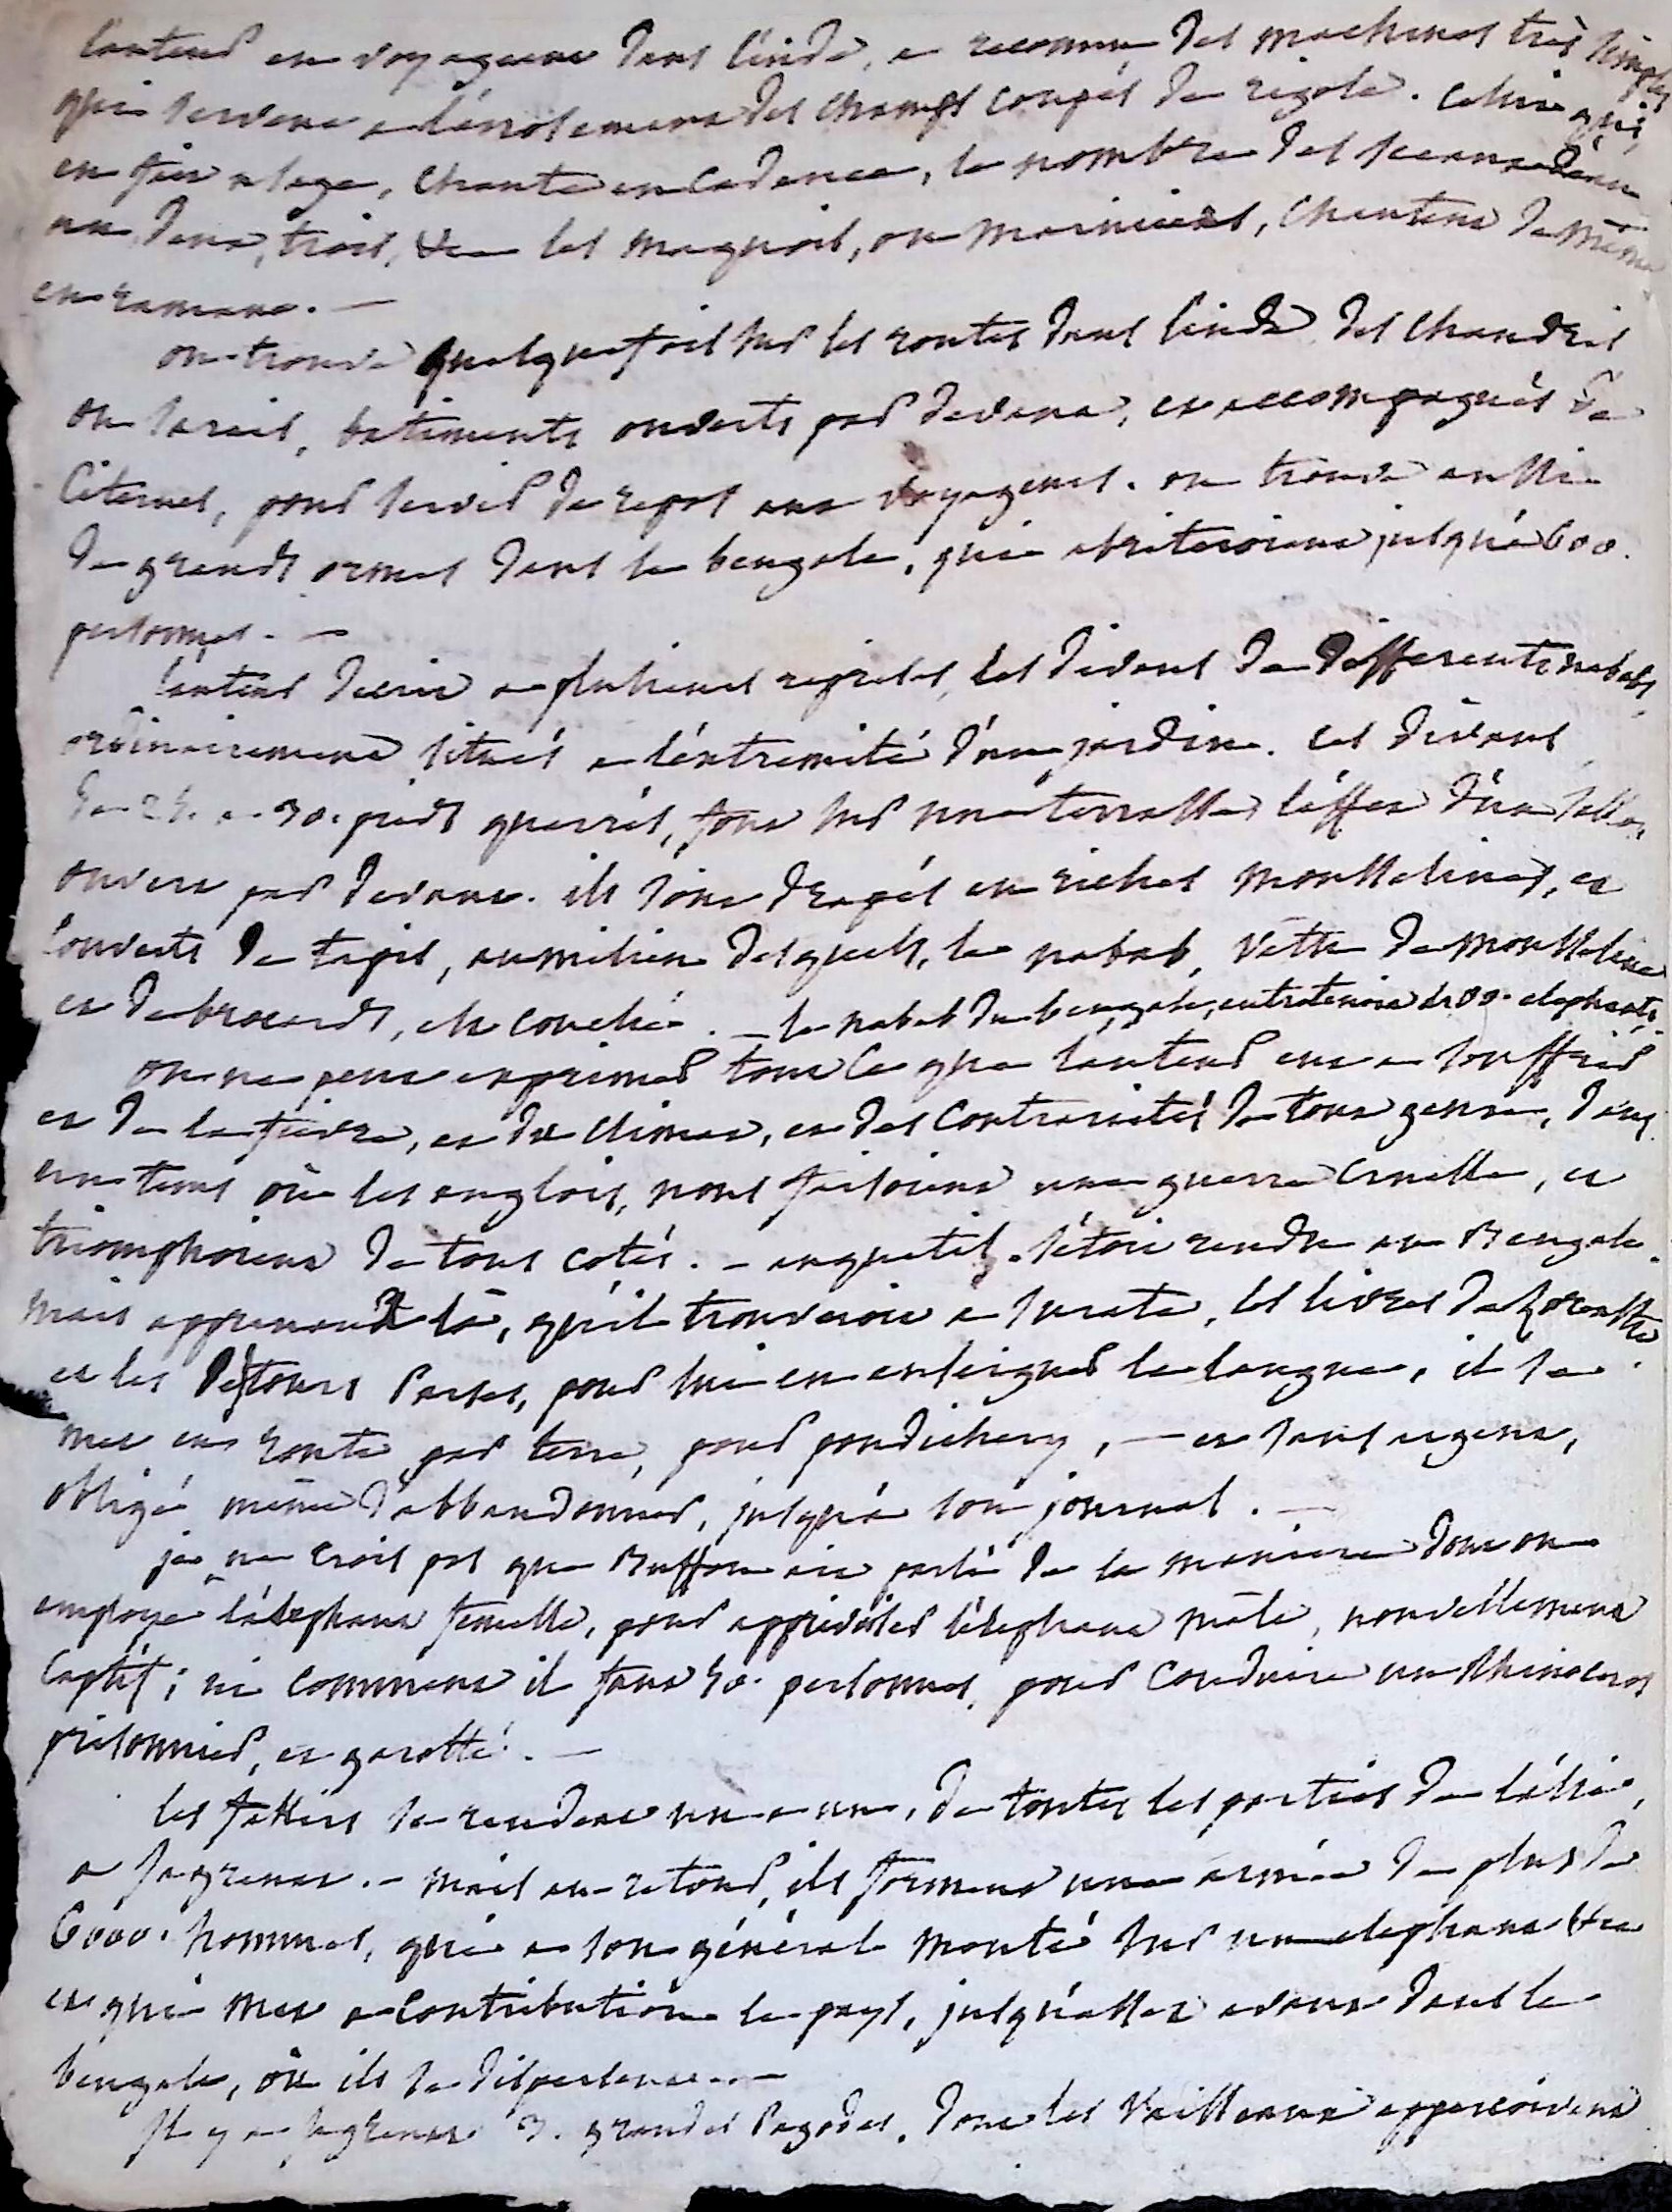 l'auteur en voyageant dans l'inde, a reconnu des machines très simples
qui servent a l'arrosement des champs coupés de rigoles. celui qui,
en fait usage, chante en cadence, le nombre des sceaux d'eau
un, deux, trois, &c les maquois, ou mariniers, chantent de même
en ramant. —
on trouve quelquefois sur les routes dans l'inde des chaudris
ou sarais, batiments ouverts par devant, et accompagnés de
Citernes, pour servir de repos aux voyageurs. on trouve aussi
de grands ormes dans le bengale, qui abriteroient jusqu'à 600.
personnes. —
l'auteur decrit a plusieurs reprises, les divans de differents nababs,
ordinairement situés a l'extremité d'un jardin. ces divans
de 25. a 30. pieds quarrés, font sur une terrasse l'effet d'une salle,
ouverte par devant. ils sont drapés en riches mousselines, et
couverts de tapis, au milieu desquels, le nabab, vetu de mousseline
et de brocards, est couché. — le nabab du bengale, entretenoit 1500. elephants.
on ne peut exprimer tout ce que l'auteur eut a souffrir
et de la fievre, et du climat, et des contrariétés de tout genre, dans
un tems où les anglois, nous faisoient une guerre cruelle, et
triomphoient de tous cotés. — anquetil s'étoit rendu au Bengale.
mais apprenant là, qu'il trouveroit a surate, les livres de Zoroastre
et les Destours Parses, pour lui en enseigner la langue, il se
met en route par terre, pour pondichery, — et sans argent,
obligé même d'abbandonner, jusqu'à son journal. —
je ne crois pas que Buffon ait parlé de la maniere dont on
employe l'élephant femelle, pour apprivoiser l'élephant mâle, nouvellement
captif; ni comment il faut 50. personnes, pour conduire un Rhinoceros
prisonnier, et garotté. —
les fakirs se rendent un a un, de toutes les parties de l'asie,
a Jagrenat. — mais au retour, ils forment une armée de plus de
6000. hommes, qui a son général monté sur un elephant &c
et qui met a contribution le pays, jusqu'assez avant dans le
bengale, où ils se dispersent. —
Il y a a jagrenat 3. grandes Pagodes, dont les vaisseaux apperçoivent